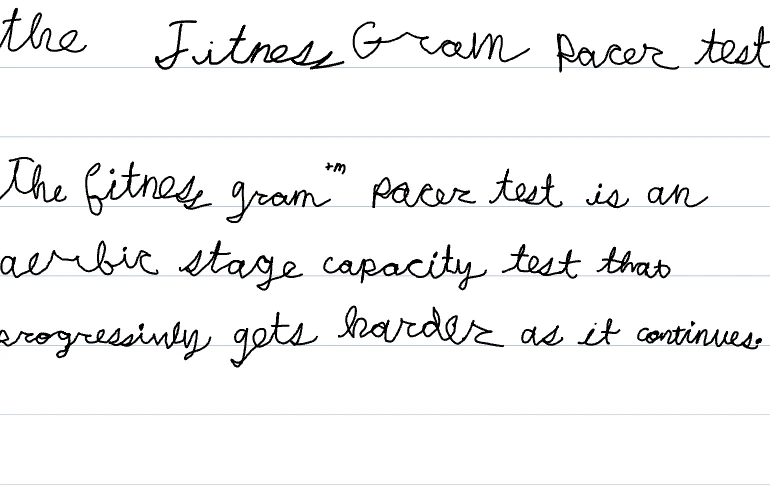 the Fitness Gram Pacer test
The fitness gram™ pacer test is an
aerbic stage capacity test that
progressivly gets harder as it continues.